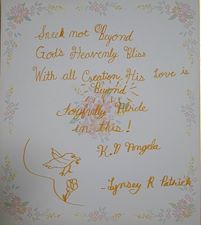 Sneek not Beyond
God's Heavenly Bliss
With all Creation, His Love is
Beyond
Joyfully Abide
in this!
K.D Angela
-Lynsey R Patrick